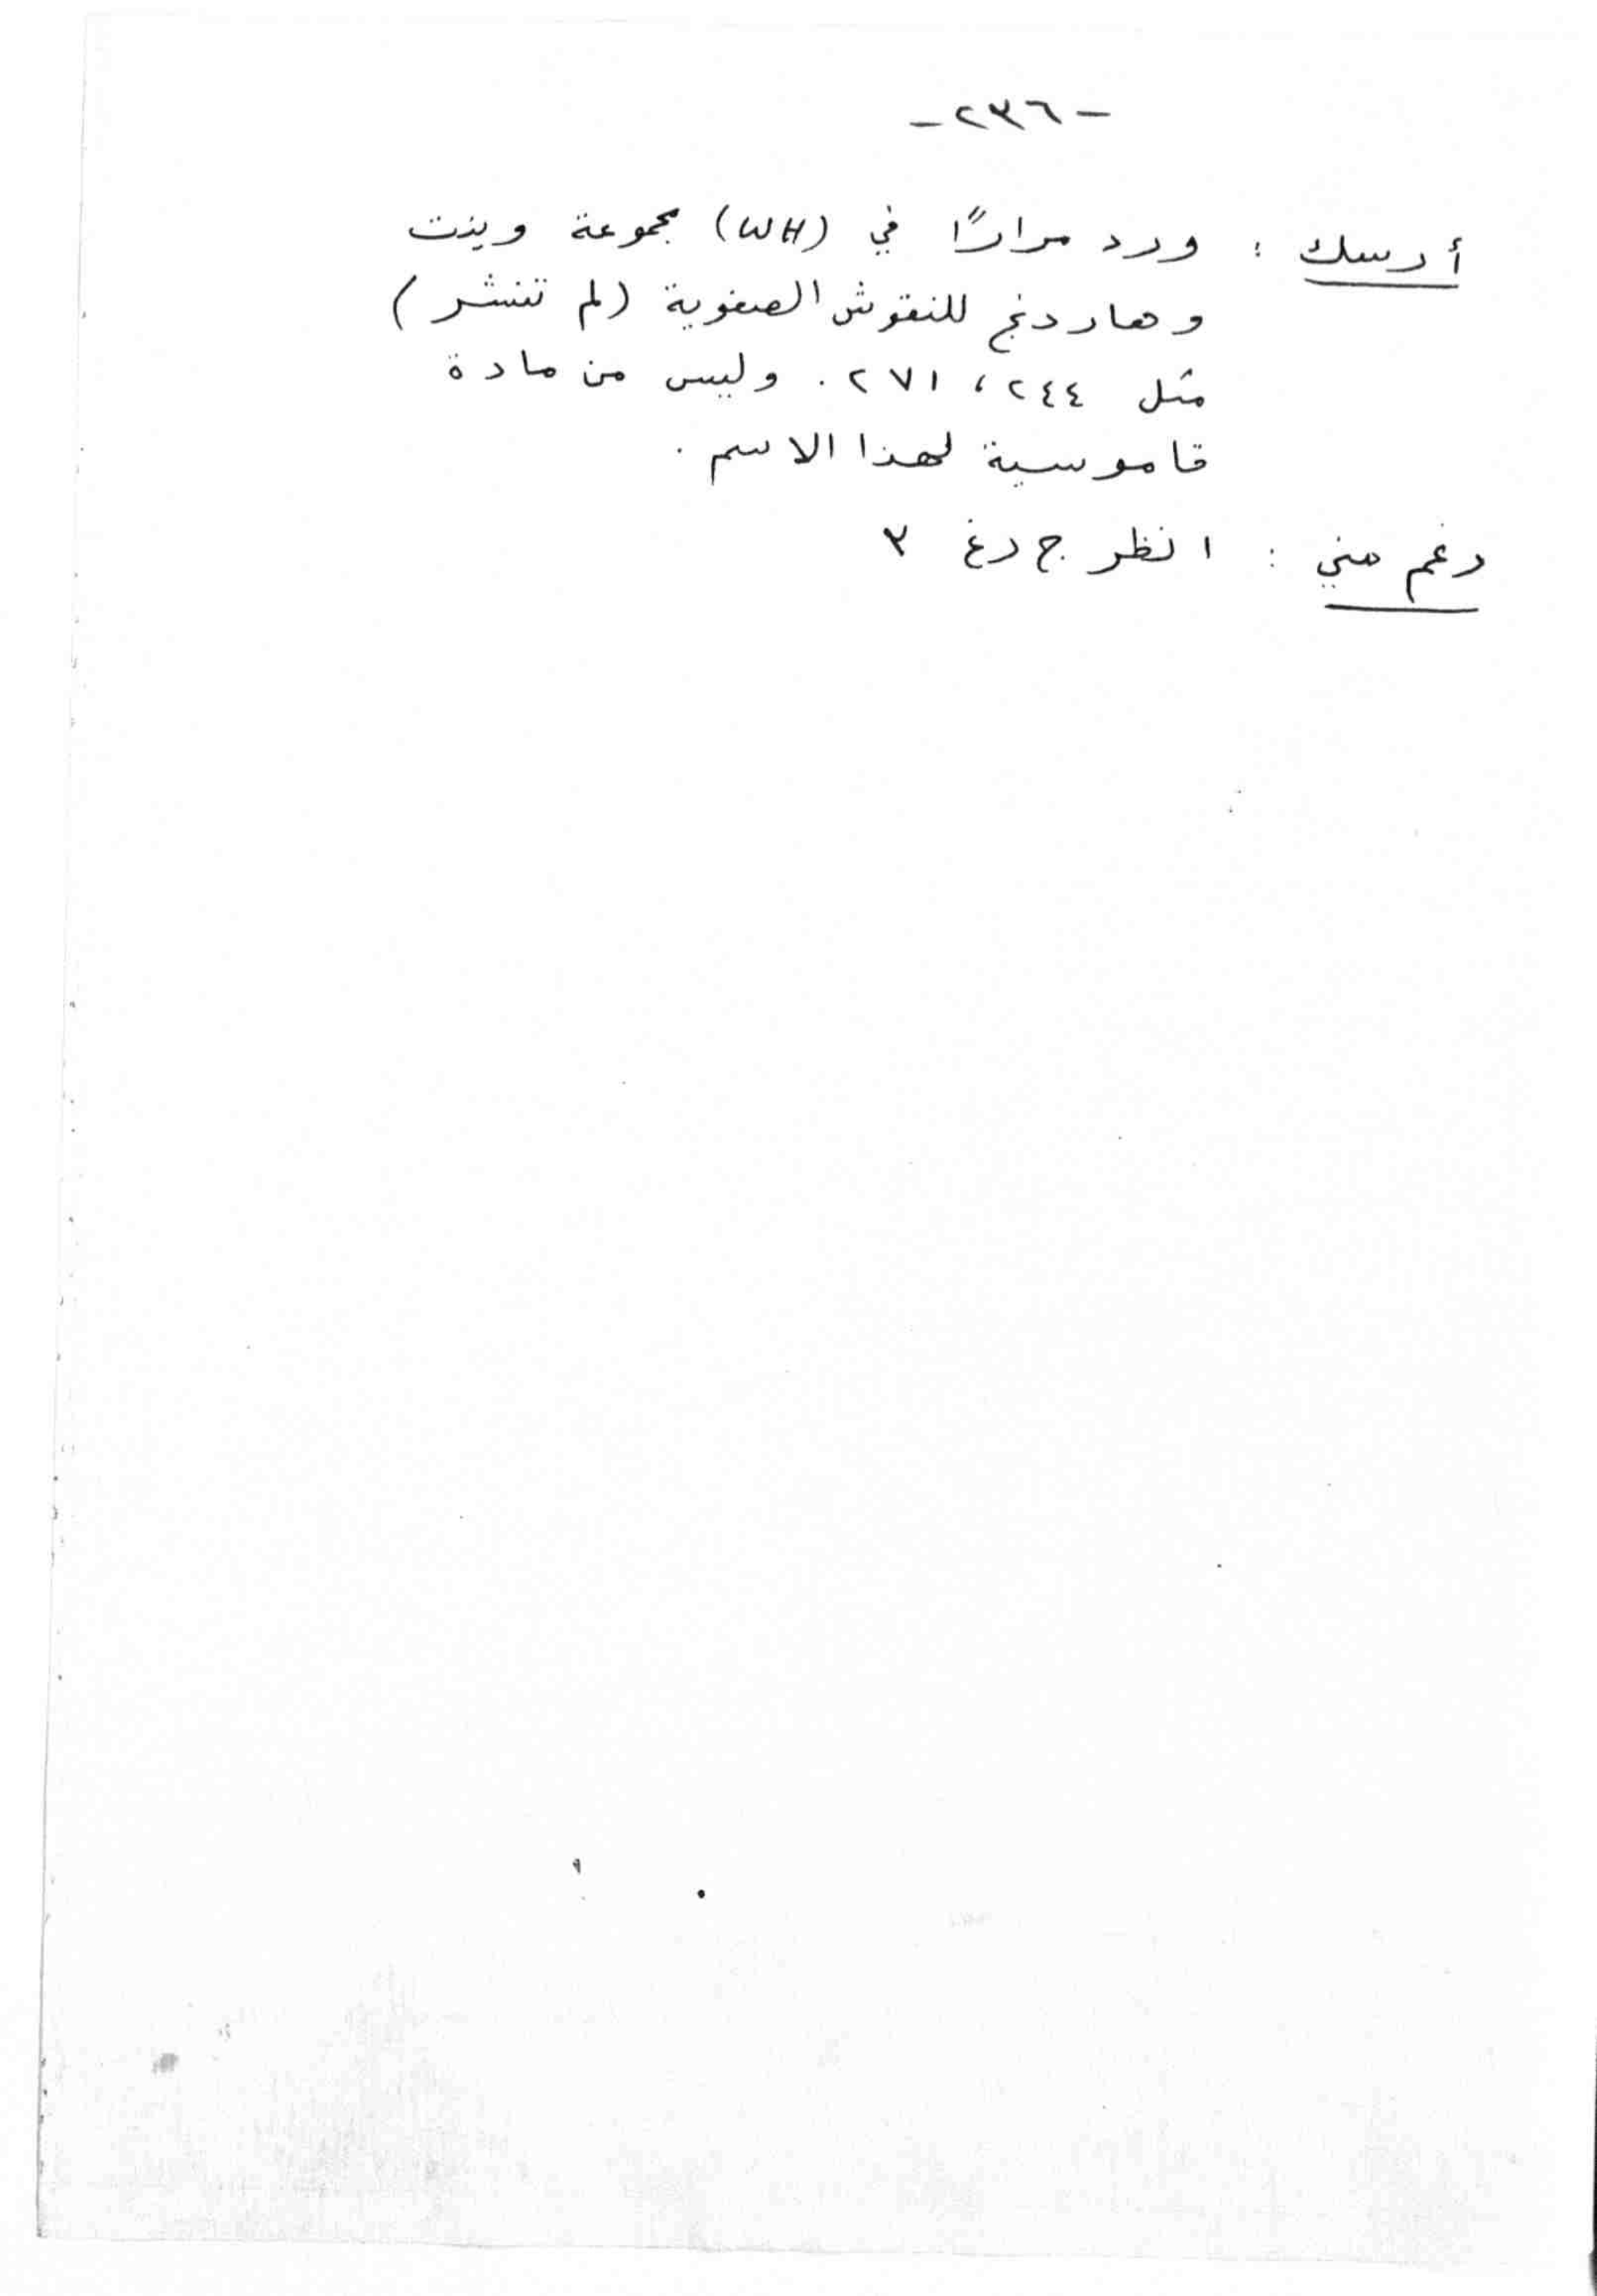 -٢٣٦-
أرسك : ورد مرارًا في (WH) مجموعة وينت
وهاردنج للنقوش الصفوية (لم تنشر)
مثل ٢٤٤، ٢٧١. وليس من مادة
قاموسية لهذا الاسم.
رغم مني : انظر ج رغ ٣